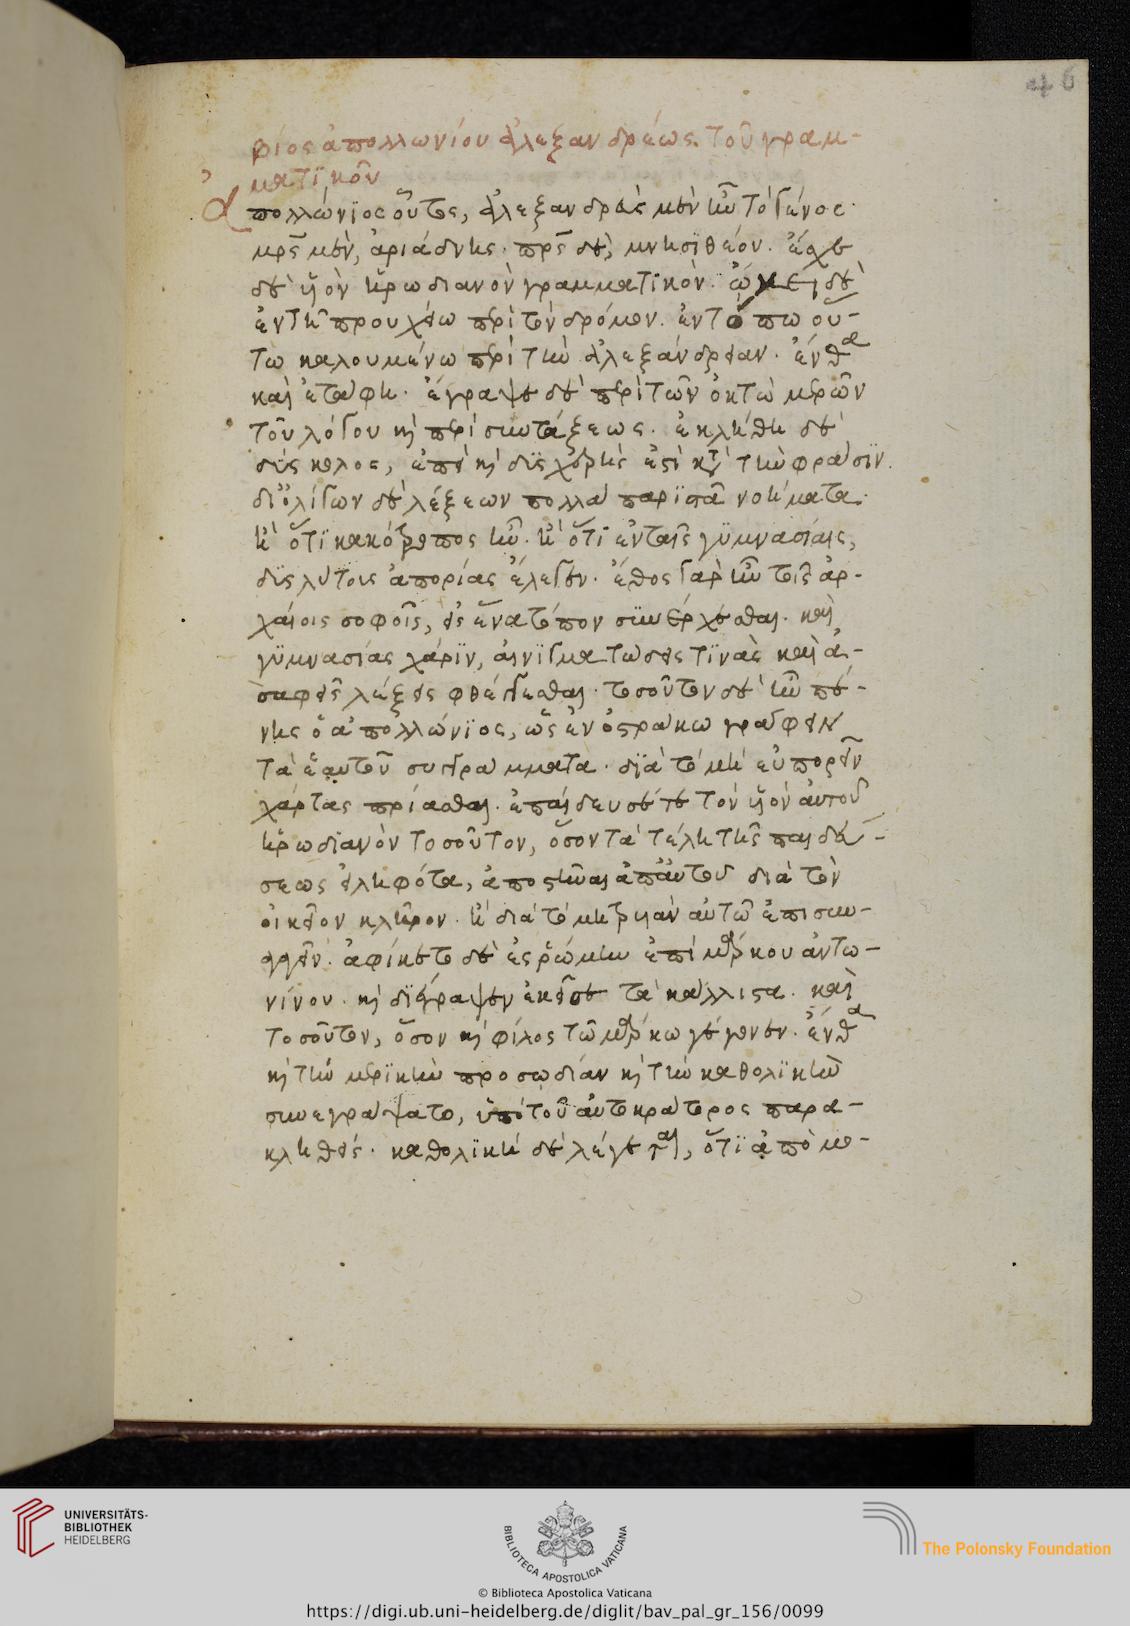 46
βίος ἀπολλωνίου ἀλεξανδρέως τοῦ γραμ-
ματϊκοῦ
ἀπολλώνϊος οὗτος, ἀλεξανδρεὺς μὲν ἦν τὸ γένος·
μρς μὲν, ἀριάδνης· πρς δὲ, μνησϊθέου. ἔσχε
δὲ ϋἱὸν ἡρωδιανὸν γραμματϊκὸν. ᾤκει δὲ
ἐν τῆ προυχείω περὶ τὸν δρόμον. ἐν τόπω οὕ-
τω καλουμένω περὶ τὴν ἀλεξάνδρειαν. ἔνθα
καὶ ἐτάφη. ἔγραψε δὲ περὶ τῶν ὀκτὼ μερῶν
τοῦ λόγου κὶ περὶ συντάξεως. ἐκλήθη δὲ
δύσκολος, ἐπεὶ κὶ δϋσχερής ἐστὶ κατὰ τὴν φράσϊν.
δι ὀλίγων δὲ λέξεων πολλὰ παρϊστᾶ νοήματα.
ἢ ὅτϊ κακότροπος ἦν. ἢ ὅτϊ ἐν ταῖς γϋμνασίαις,
δϋσλύτους ἀπορίας ἔλεγεν. ἔθος γὰρ ἦν τοῖς ἀρ-
χαίοις σοφοῖς, εἰς ἕνα τόπον σϋνέρχεσθαι. καὶ
γϋμνασίας χάρϊν, αἰνϊγματώδεις τϊνὰς καὶ ἀ-
σαφεῖς λέξεις φθέγγεσθαι. τοσοῦτον δὲ ἦν πέ-
νης ὁ ἀπολλώνϊος, ὡς ἐν ὀστράκω γράφειν
τὰ ἑαυτοῦ συγγράμματα. δϊὰ τὸ μὴ εὐπορεῖν
χάρτας πρίασθαι. ἐπαίδευσέ τε τὸν ϋἱὸν αὐτοῦ
ἡρωδϊανὸν τοσοῦτον, ὅσον τὰ τέλη τῆς παιδεύ-
σεως εἰληφότα, ἀποστῆναι ἀπ αὐτοῦ διὰ τὸν
οἰκεῖον κλῆρον. ἢ διὰ τὸ μητρυιὰν αὐτῶ ἐπισυν-
αφθεῖν. ἀφίκετο δὲ ἐς ῥώμην ἐπὶ μάρκου ἀντω-
νίνου. κὶ δϊέγραψεν ἐκεῖσε τὰ κάλλιστα. καὶ
τοσοῦτον, ὅσον κὶ φίλος τῶ μάρκω γέγονεν. ἔνθα
κὶ τὴν μερϊκὴν προσωδίαν κὶ τὴν καθολϊκὴν
συνεγράψατο, ὑπὸ τοῦ αὐτοκράτορος παρα-
κληθείς. καθολϊκὴ δὲ λέγεται, ὅτϊ ἀπὸ με-
UNIVERSITÄTS-
BIBLIOTHEK
HEIDELBERG
BIBLIOTECA APOSTOLICA VATICANA
The Polonsky Foundation
© Biblioteca Apostolica Vaticana
https://digi.ub.uni-heidelberg.de/diglit/bav_pal_gr_156/0099